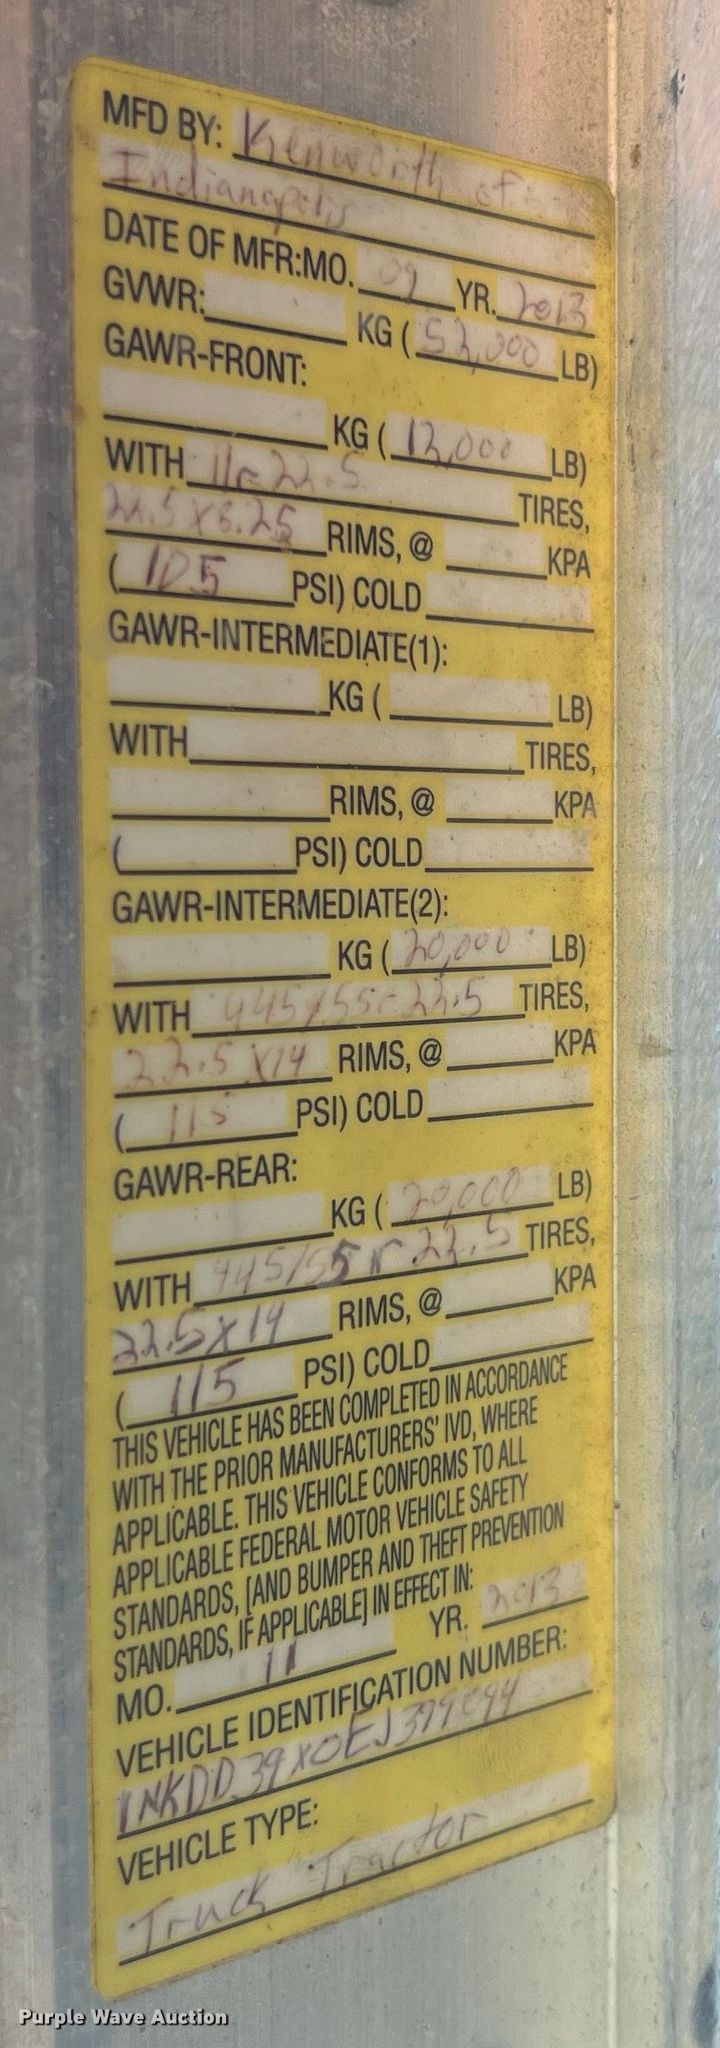 MFD BY: Kenworth of
Indianapolis
DATE OF MFR:MO. 09 YR. 2013
GVWR: KG ( 52,000 LB)
GAWR-FRONT:
KG ( 12,000 LB)
WITH 11r22.5 TIRES,
22.5X8.25 RIMS, @ KPA
( 105 PSI) COLD
GAWR-INTERMEDIATE(1):
KG ( LB)
WITH TIRES,
RIMS, @ KPA
( PSI) COLD
GAWR-INTERMEDIATE(2):
KG ( 20,000 LB)
WITH 445/55r22.5 TIRES,
22.5 X14 RIMS, @ KPA
( 115 PSI) COLD
GAWR-REAR:
KG ( 20,000 LB)
WITH 445/55r 22.5 TIRES,
22.5X14 RIMS, @ KPA
( 115 PSI) COLD
THIS VEHICLE HAS BEEN COMPLETED IN ACCORDANCE
WITH THE PRIOR MANUFACTURERS' IVD, WHERE
APPLICABLE. THIS VEHICLE CONFORMS TO ALL
APPLICABLE FEDERAL MOTOR VEHICLE SAFETY
STANDARDS, [AND BUMPER AND THEFT PREVENTION
STANDARDS, IF APPLICABLE] IN EFFECT IN:
MO. 11 YR. 2013
VEHICLE IDENTIFICATION NUMBER:
VEHICLE TYPE:
Truck Tractor
Purple Wave Auction